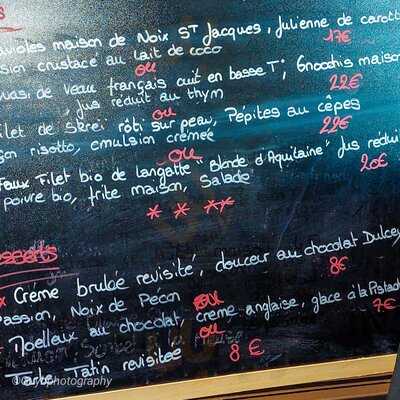 s
avioles maison de Noix ST Jacques, Julienne de carott
sion crustacé au lait de coco 17€
ou
uasi de veau français cuit en basse T°, Gnocchis maison
, jus réduit au thym 22€
ou
ilet de Skreï rôti sur peau, Pépites au cêpes
on risotto, emulsion crémée 22€
ou
Faux Filet bio de langatte "Blonde d'Aquitaine" Jus rédui
poivre bio, frite maison, Salade 20€
esserts
x Crème brulée revisité, douceur au chocolat Dulcey
Passion, Noix de Pécan 8€
ou
Moelleux au chocolat, crème anglaise, glace à la Pistach
ou 7€
Tarte Tatin revisitée 8€
photography